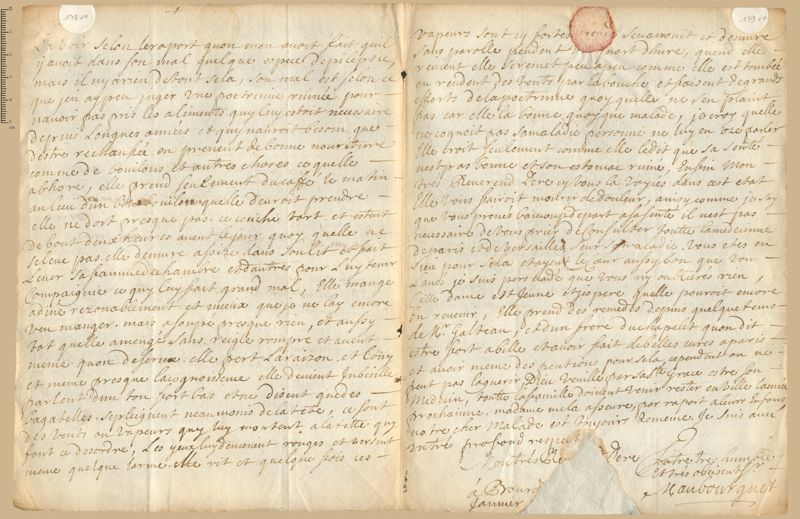 179 v°
savoir selon le raport quon men avoit fait quil
y avoit dans son mal quelque espece depilepsie,
mais il ny a rien de tout sela, son mal est selon ce
que jen ay peu juger une poetrinne ruinée pour
navoir pas pris les aliments quy luy estoit necessaire
depuis Longues années et quy nauroit besoin que
destre rechaufée en prenent de bonne nourriture
comme de bouilons et autres choses ce quelle
abhore, elle prend seulement du caffé le matin
au lieu dun bouilon quelle devroit prendre
elle ne dort presque pas. ce couche tart et estent
de bout deux heures avent le jour quoy quelle ne
se leve pas, elle demure assize dans son lit et fait
Lever sa famme de chambre et dautres pour Luy tenir
Compaignie ce quy luy fait grand mal, Elle mange
a dine rezonablement et mieux que je ne lay encore
veu manger. mais a soupre presque rien, et aussy
tot quelle a mengé sans reigle rompre et aucun
meme quon deserve. elle pert La raizon et Louy
et meme presque la cognoissense elle devient Imbesille
parlent dun ton fort bas et ne Disent que des
bagatelles se pleignent neaumoins de la tete, ce sont
des vents ou vapeurs quy luy montent a la tete quy
font ce desordre, Les yeux luy devienent rouges et versent
meme quelque larme. elle rit et quelque fois ces
179 r°
vapeurs sont cy fortes quelle sevanouit et demure
sans parolle pendent demy quart dhure, quend elle
revient elle se remet peu a peu comme elle est tombée
en rendent des vents par la bouche et faisent de grands
efforts de la poetrinne quoy quelle ne sen plaint
pas car elle la bonne quoy que malade, je croy quelle
ne cognoit pas sa maladie personne ne luy en oze parler
Elle croit seulement comme elle le dit que sa sente
nest pas bonne et son estomac ruiné, Enfin Mon
tres Reverend Pere cy vous la voyiés dans cest etat
Elle vous fairoit mourir de douleur, ausy comme je say
que vous prenés beaucoup de part a sa sente il nest pas
necessaire de vous prier de Consulter toutte la medecinne
de paris et de versailles sur sa maladie. vous etes en
lieu pour sela et ayent le cœur aussy bon que vous
Laves je suis persuadé que vous ny oublieres rien,
Cette dame est Jeune et jespere quelle pouroit encore
En revenir, Elle prend des remedes depuis quelque tems
de Mr. Galteau, et dun frere du chapelet quon dit
estre fort abille et avoir fait de belles cures a paris
et avoir meme des pentions pour sela, cependent on ne
peut pas la guerir Dieu veuille par sa Ste. Grace estre son
Medecin, toutte la famille doivent venir rester en ville l'année
prochainne, madame me la assuré, par raport a leurs Enfans,
notre cher Malade est toujours de meme. Je suis avec
un tres profond respect
Mon tres Rd. Pere
Votre tres humble
et tres obeissent sr.
Maubourguet
à Bourd
Janvier